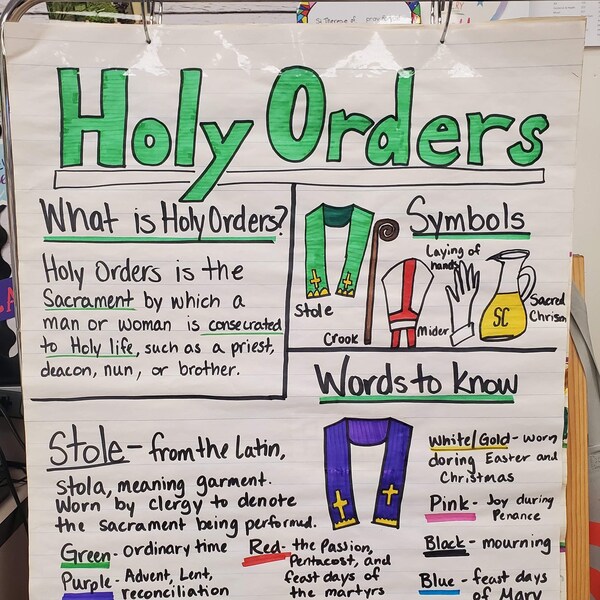 St Therese of
Holy Orders
What is Holy Orders?
Holy Orders is the
Sacrament by which a
man or woman is consecrated
to Holy life, such as a priest,
deacon, nun, or brother.
Symbols
Laying of
hands
Stole
Crook
Mider
SC
Sacred
Chrism
Words to know
Stole - from the Latin,
stola, meaning garment.
Worn by clergy to denote
the sacrament being performed.
Green - Ordinary time
Purple - Advent, Lent,
reconciliation
Red - the Passion,
Pentacost, and
feast days of
the martyrs
White/Gold - worn
doring Easter and
Christmas
Pink - Joy during
Penance
Black - mourning
Blue - feast days
of Mary